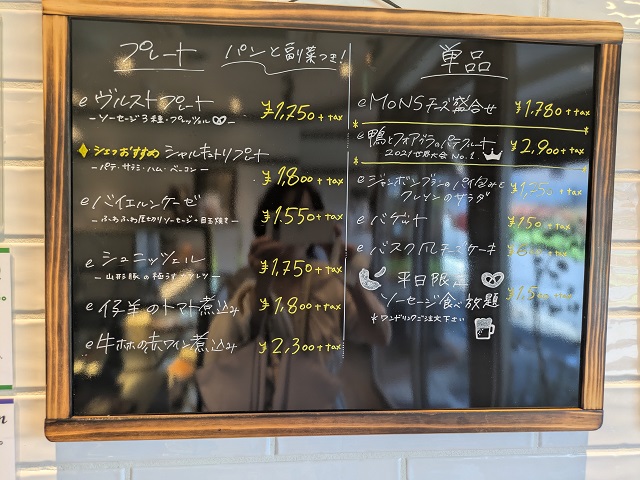 プレート パンと副菜つき!
e ヴルストプレート ¥1,750+tax
ーソーセージ3種・プレッツェルー
♦シェフおすすめ シャルキュトリプレート
ーパテ・サラミ・ハム・ベーコンー
¥1,800+tax
e バイエルンケーゼ
ーふわふわ厚切りソーセージ+目玉焼きー ¥1,550+tax
e シュニッツェル ¥1,750+tax
ー山形豚の極うすカツレツー
e 仔羊のトマト煮込み ¥1,800+tax
e 牛ホホの赤ワイン煮込み ¥2,300+tax
単品
e MONSチーズ盛合せ ¥1,780+tax
e 鴨とフォアグラのパテクルート ¥2,900+tax
2021世界大会 No.1
e ジャンボンブランのパイ包みと
クレソンのサラダ
e バゲット ¥150+tax
e バスク風チーズケーキ
平日限定
ソーセージ食べ放題
*ワンドリンクご注文下さい